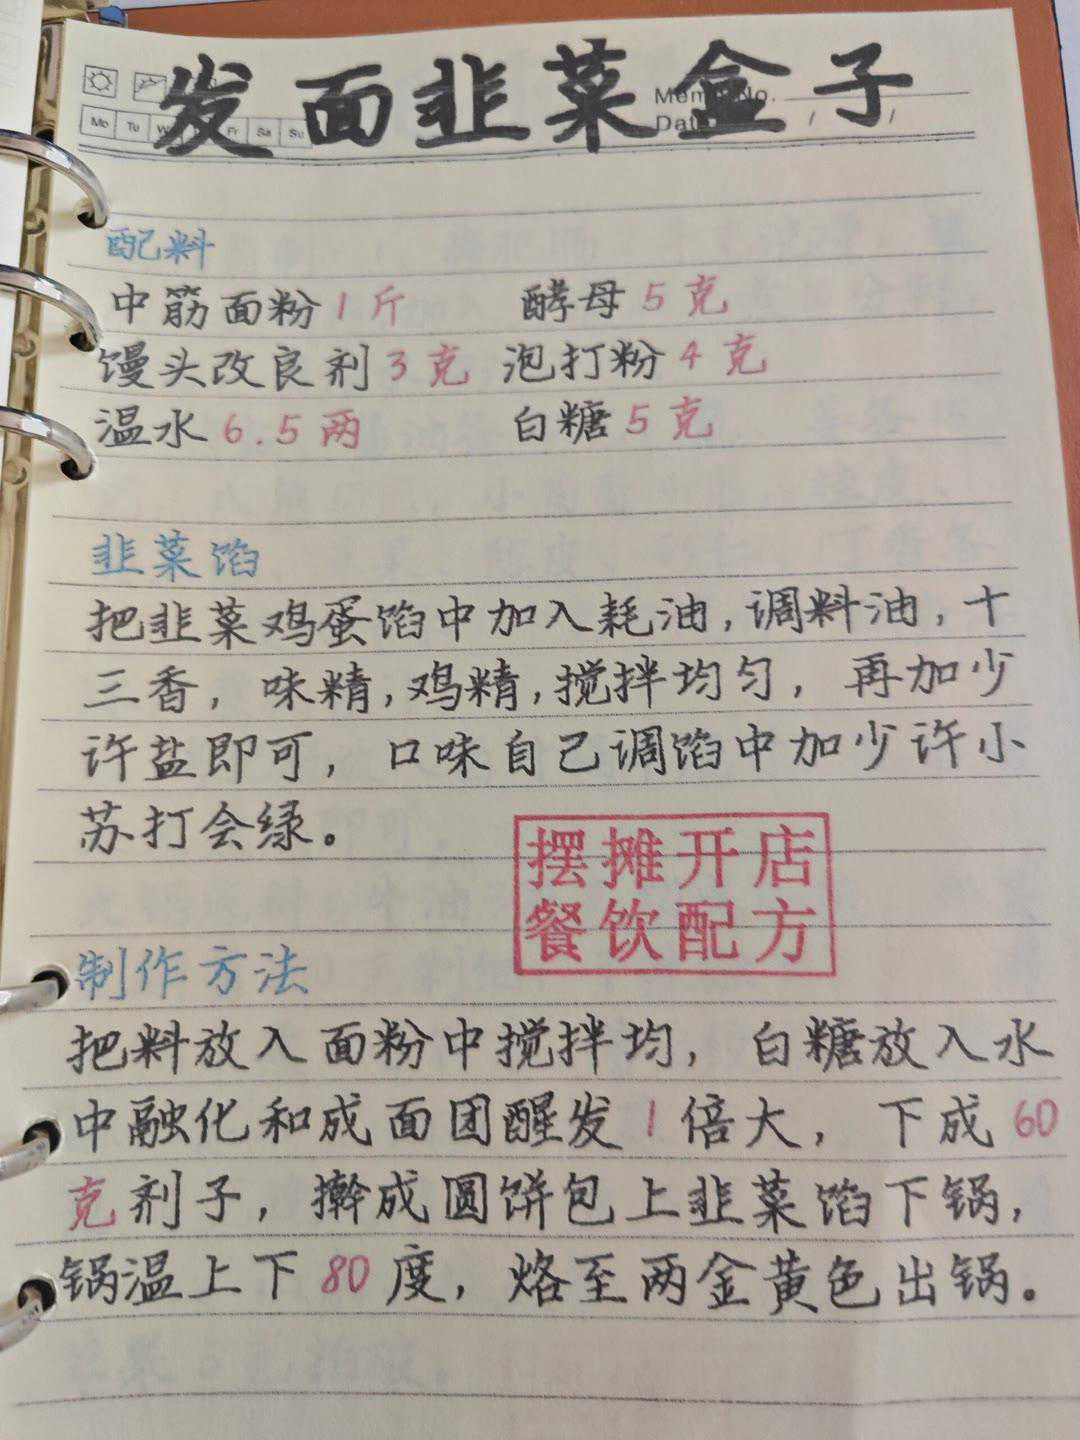 发面韭菜盒子
Memo No.
Mo Tu Fr Sa Su Date / /
配料
中筋面粉1斤 酵母5克
馒头改良剂3克 泡打粉4克
温水6.5两 白糖5克
韭菜馅
把韭菜鸡蛋馅中加入耗油,调料油,十
三香,味精,鸡精,搅拌均匀,再加少
许盐即可,口味自己调馅中加少许小
苏打会绿。
摆摊开店
餐饮配方
制作方法
把料放入面粉中搅拌均,白糖放入水
中融化和成面团醒发1倍大,下成60
克剂子,擀成圆饼包上韭菜馅下锅,
锅温上下80度,烙至两金黄色出锅。